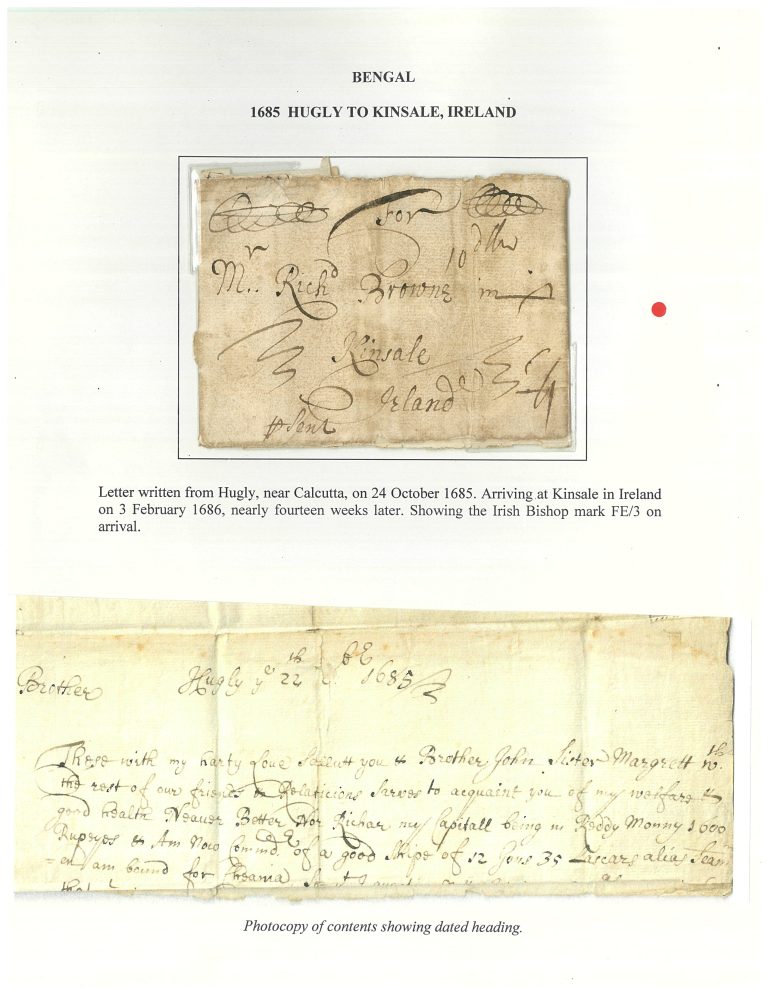 BENGAL
1685 HUGLY TO KINSALE, IRELAND
For
Mr. Richd Browne in
10
Kinsale
Irland
sent
Letter written from Hugly, near Calcutta, on 24 October 1685. Arriving at Kinsale in Ireland
on 3 February 1686, nearly fourteen weeks later. Showing the Irish Bishop mark FE/3 on
arrival.
Brother Hugly ye 22th 1685
These with my harty Love Sallutt you & Brother John Sister Margrett wth
the rest of our friends & Relaticions sarves to acquaint you of my welfare &
good health Neaver Better Nor Richar my Capitall being in Reddy Monny 1600
Rupeyes & Am Now of a good Shipe of 12 Guns 35 Lascars alias Seam
=en am bound for
Photocopy of contents showing dated heading.